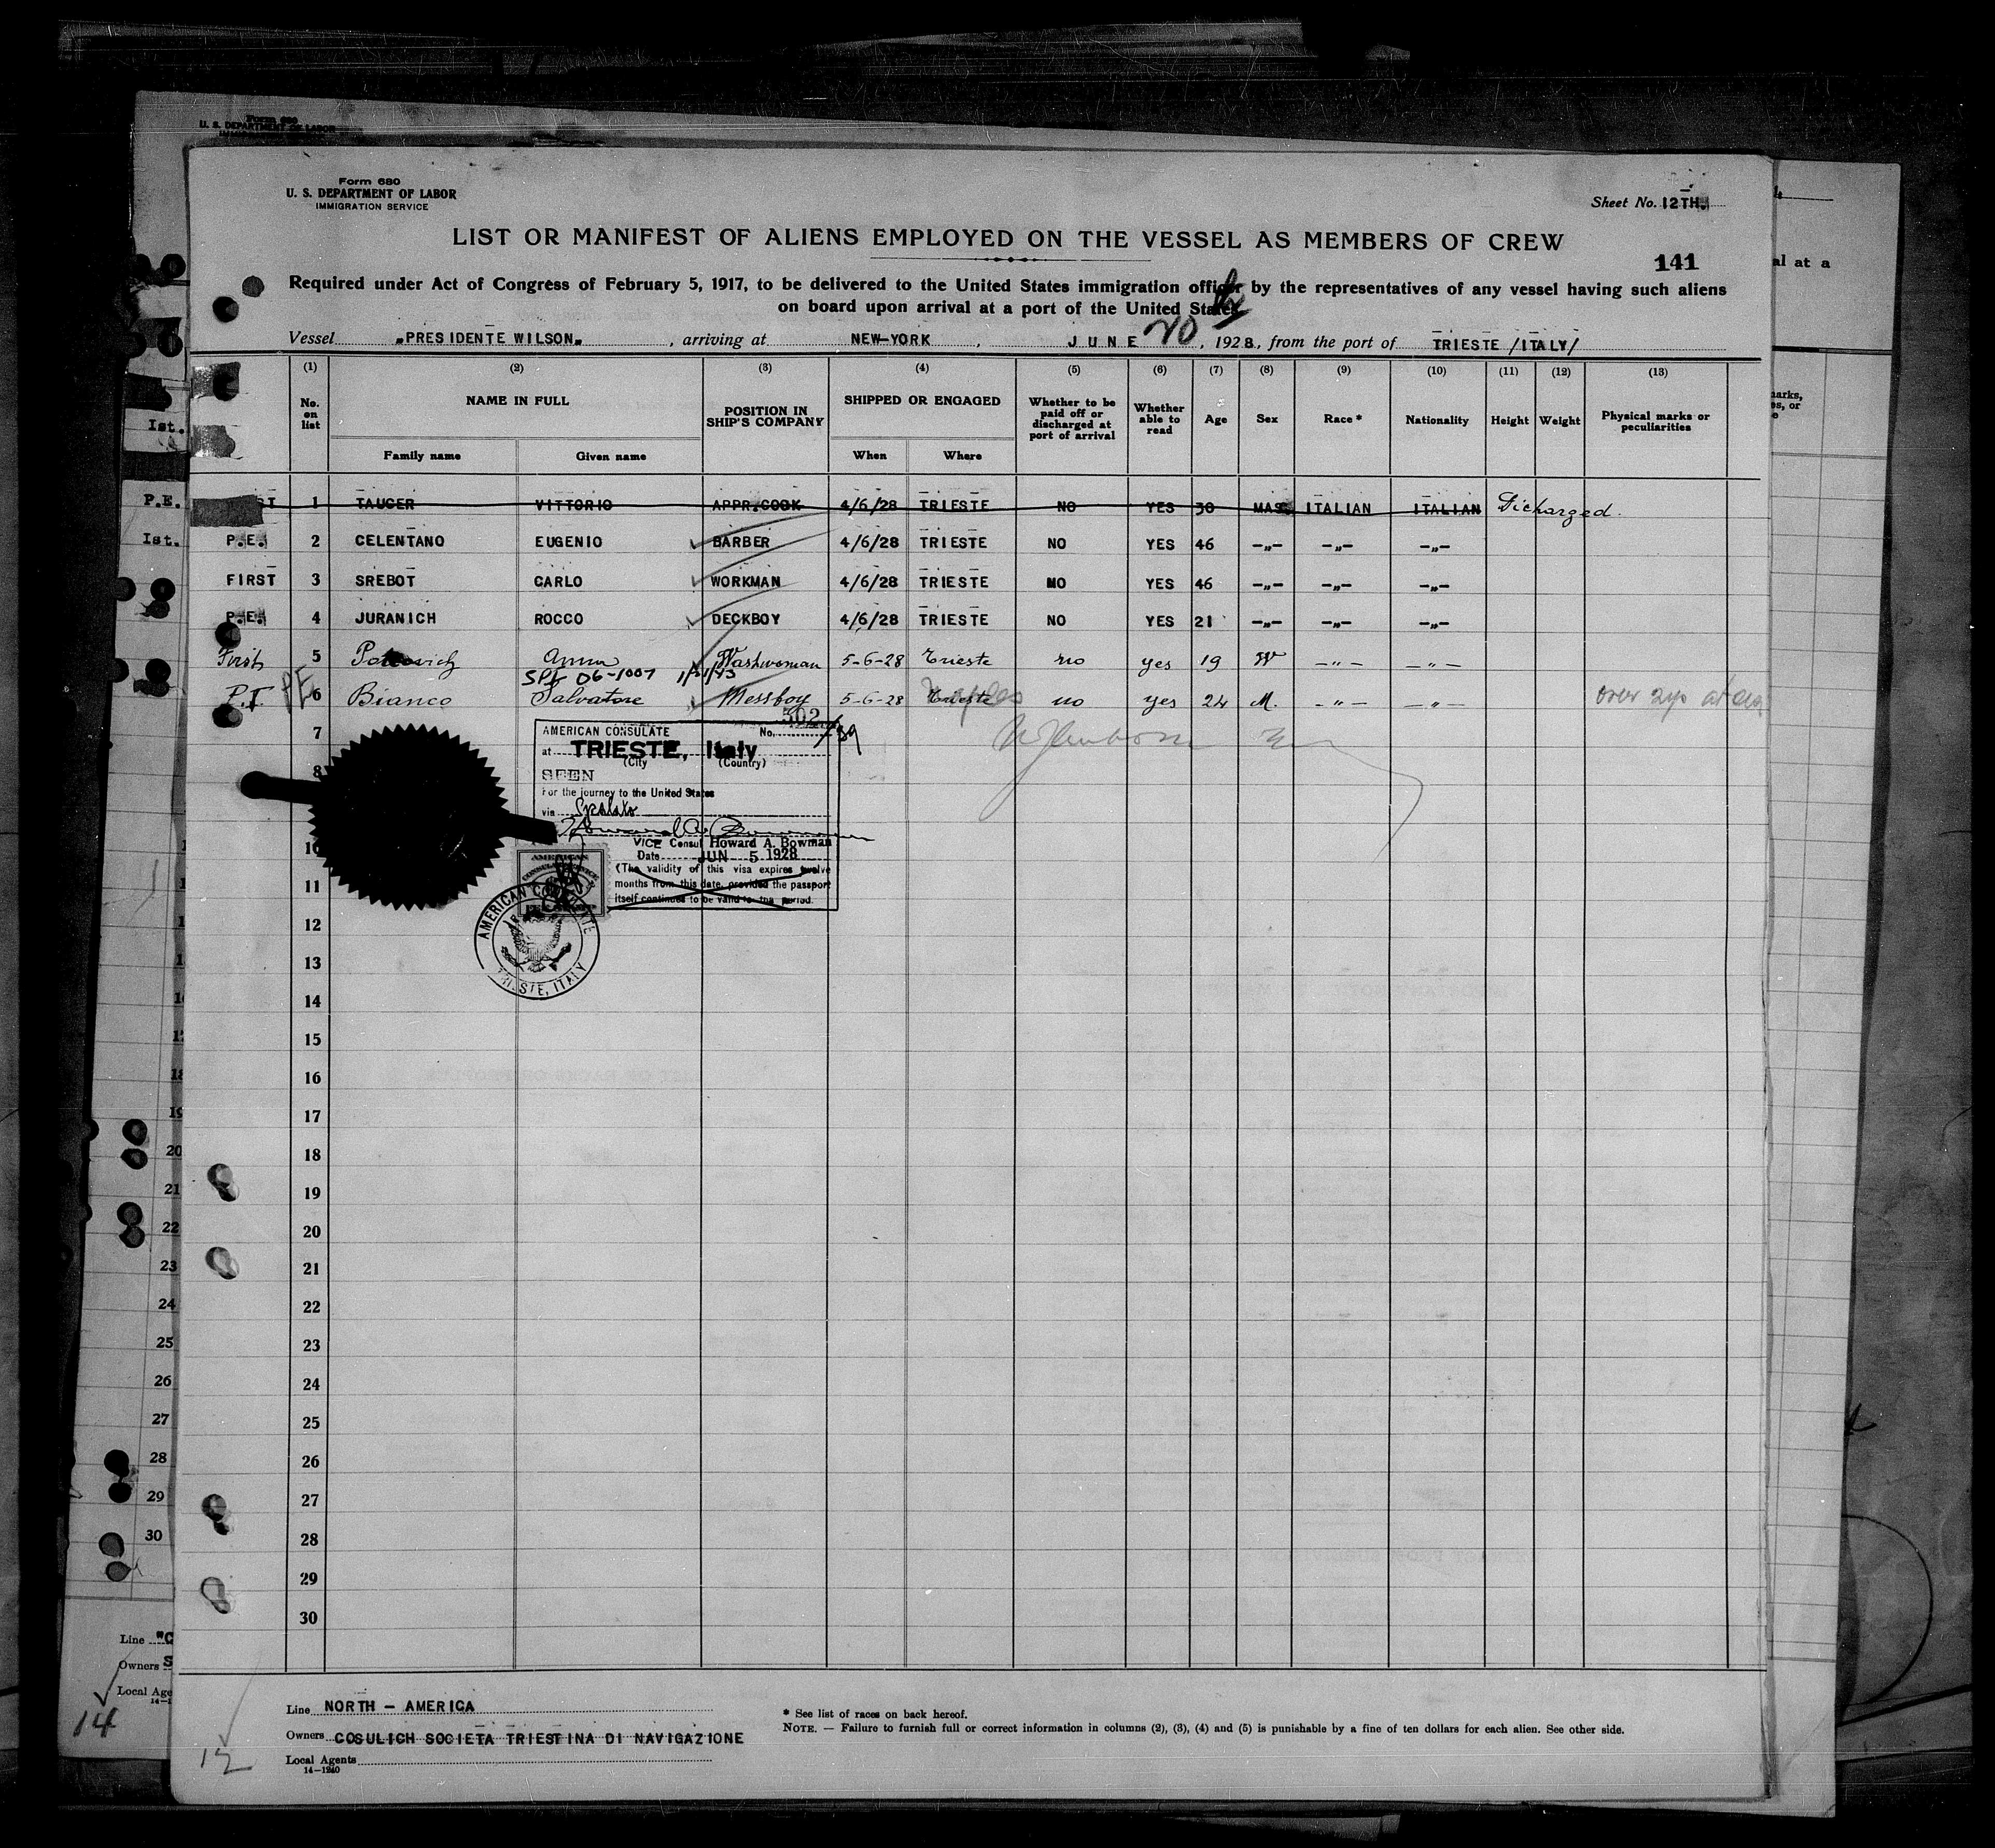 Form 680
U. S. DEPARTMENT OF LABOR
IMMIGRATION SERVICE
Sheet No. 12TH.
LIST OR MANIFEST OF ALIENS EMPLOYED ON THE VESSEL AS MEMBERS OF CREW
141
Required under Act of Congress of February 5, 1917, to be delivered to the United States immigration officer by the representatives of any vessel having such aliens
on board upon arrival at a port of the United States
Vessel „PRESIDENTE WILSON„ , arriving at NEW-YORK , JUNE 20 , 1928, from the port of TRIESTE /ITALY/
(1) (2) (3) (4) (5) (6) (7) (8) (9) (10) (11) (12) (13)
No. on list NAME IN FULL POSITION IN SHIP'S COMPANY SHIPPED OR ENGAGED Whether to be paid off or discharged at port of arrival Whether able to read Age Sex Race * Nationality Height Weight Physical marks or peculiarities
Family name Given name When Where
1 TAUCER VITTORIO APPR.COOK 4/6/28 TRIESTE NO YES 30 MAS ITALIAN ITALIAN Dicharged.
P.E. 2 CELENTANO EUGENIO BARBER 4/6/28 TRIESTE NO YES 46 -„- -„- -„-
FIRST 3 SREBOT CARLO WORKMAN 4/6/28 TRIESTE NO YES 46 -„- -„- -„-
P.E. 4 JURANICH ROCCO DECKBOY 4/6/28 TRIESTE NO YES 21 -„- -„- -„-
First 5 Anna Washwoman 5-6-28 Trieste no yes 19 W -„- -„-
SPL 06-1007 1/31/43
P.E. PE 6 Bianco Salvatore Messboy 5-6-28 Trieste Naples no yes 24 M. -„- -„- over 2yo at sea
7
8
10
11
12
13
14
15
16
17
18
19
20
21
22
23
24
25
26
27
28
29
30
AMERICAN CONSULATE No. 502
at TRIESTE, Italy
(City (Country)
SEEN
For the journey to the United States
via Spalato
VICE Consul Howard A. Bowman
Date JUN 5 1928
(The validity of this visa expires twelve
months from this date, provided the passport
itself continues to be valid for the period.
AMERICAN CONSULATE
TRIESTE, ITALY
Line NORTH - AMERICA
Owners COSULICH SOCIETA TRIESTINA DI NAVIGAZIONE
Local Agents
14-1240
* See list of races on back hereof.
NOTE. — Failure to furnish full or correct information in columns (2), (3), (4) and (5) is punishable by a fine of ten dollars for each alien. See other side.
12
Form 680
U. S. DEPARTMENT OF LABOR
Ist.
P.E.
Ist.
18
19
20
21
22
23
24
25
26
27
28
29
30
Line "C
Owners S
Local Age
14
al at a